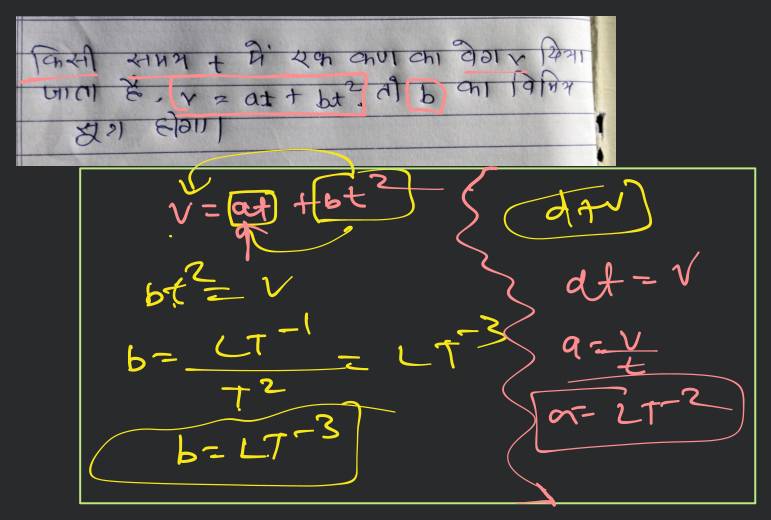 किसी समय t में एक कण का वेग v दिया
जाता है. v = at + bt². तो b का विमिय
सूत्र होगा।
v = at + bt²
bt² = v
b = LT⁻¹ / T² = LT⁻³
b = LT⁻³
d + v
at = v
a = v / t
a = LT⁻²